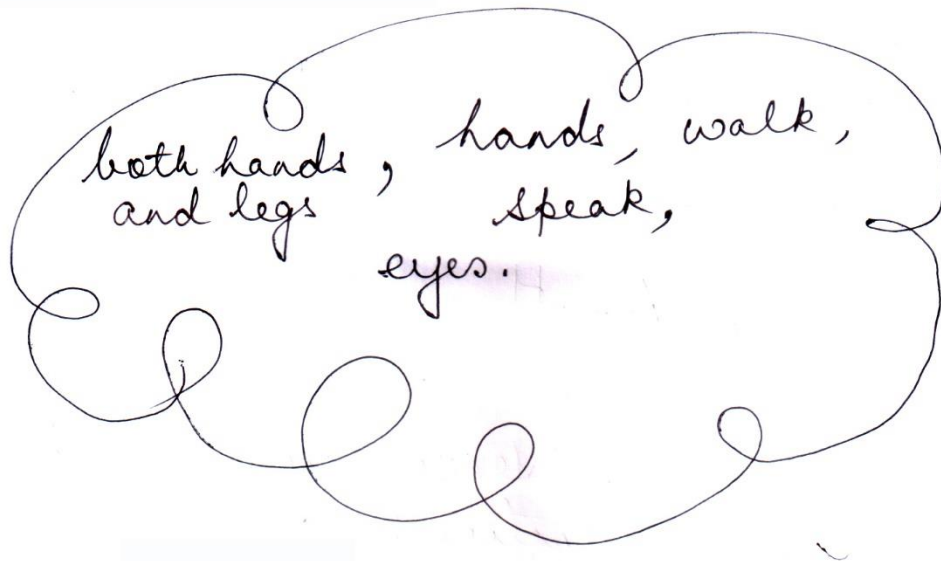 both hands and legs, hands, walk,
speak,
eyes.